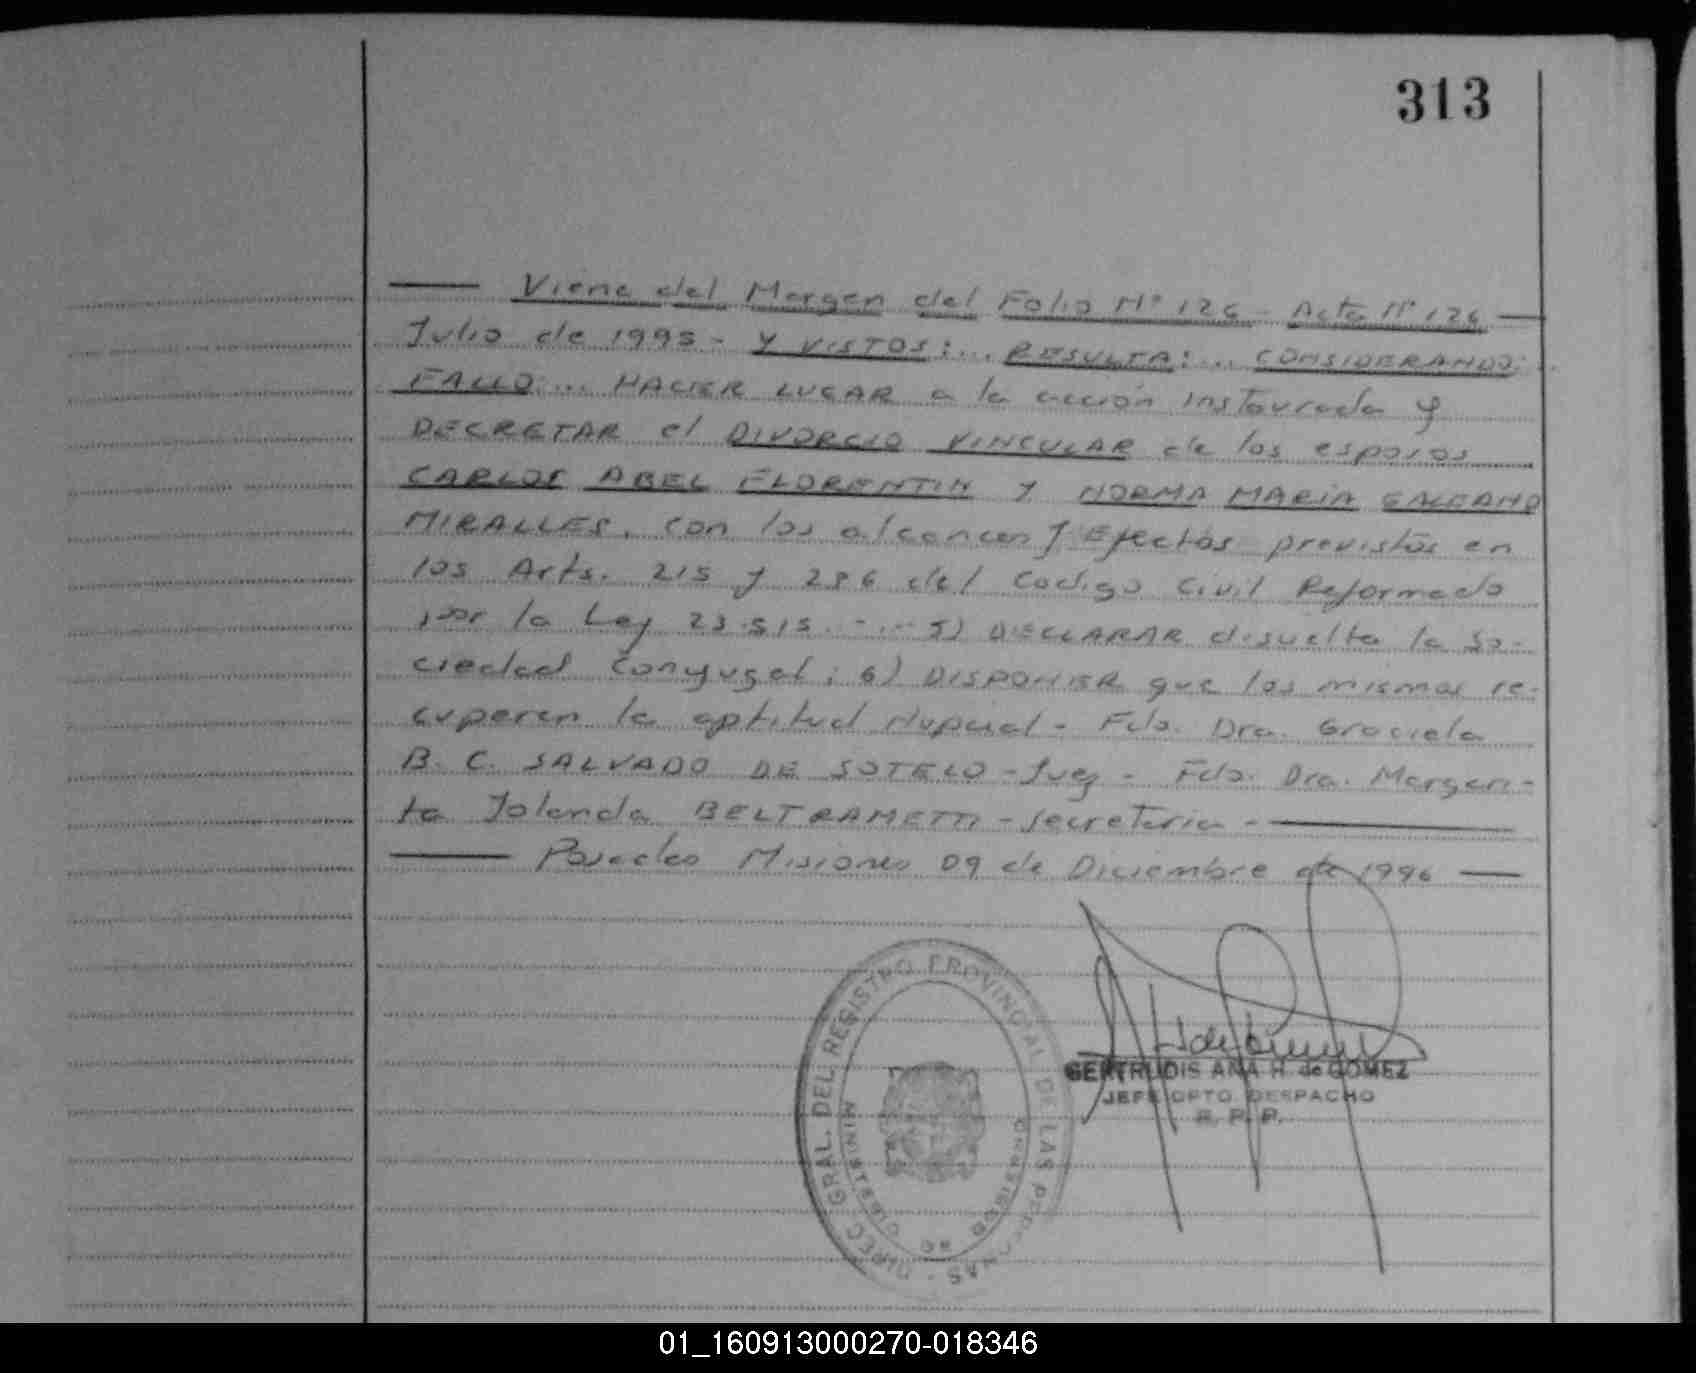 313
Viene del Margen del Folio Nº 126 - Acta Nº 126
Julio de 1995 - Y VISTOS:... RESULTA:... CONSIDERANDO:..
FALLO:... HACER LUGAR a la acción instaurada y
DECRETAR el DIVORCIO VINCULAR de los esposos
CARLOS ABEL FLORENTIN Y NORMA MARIA GALEANO
MIRALLES, con los alcances y Efectos previstos en
los Arts. 215 y 236 del Codigo Civil Reformado
por la Ley 23.515. -..- 5) DECLARAR disuelta la So-
ciedad Conyugal; 6) DISPONER que los mismos re-
cuperen la aptitud Nupcial - Fdo. Dra. Graciela
B. C. SALVADO DE SOTELO - Juez - Fdo. Dra. Margari-
ta Yolanda BELTRAMETTI - Secretaria -
Posadas Misiones 09 de Diciembre de 1996
GERTRUDIS ANA H. de GOMEZ
JEFE DPTO. DESPACHO
R. P. P.
DIREC. GRAL. DEL REGISTRO PROVINCIAL DE LAS PERSONAS
MINISTERIO DE GOBIERNO
01_160913000270-018346